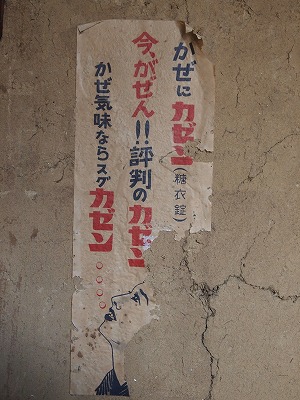 かぜにカゼン（糖衣錠）
今、がぜん!!評判のカゼン
かぜ気味ならスグカゼン